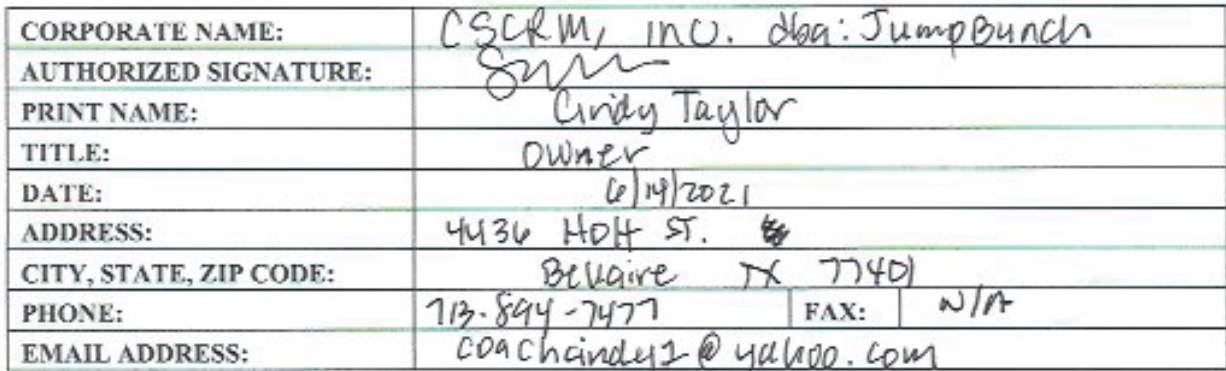 CORPORATE NAME: CSCRM, INC. dba: JumpBunch
AUTHORIZED SIGNATURE:
PRINT NAME: Cindy Taylor
TITLE: Owner
DATE: 6/14/2021
ADDRESS: 4436 Holt ST.
CITY, STATE, ZIP CODE: Bellaire TX 77401
PHONE: 713-894-7477 FAX: N/A
EMAIL ADDRESS: coachcindy1@yahoo.com